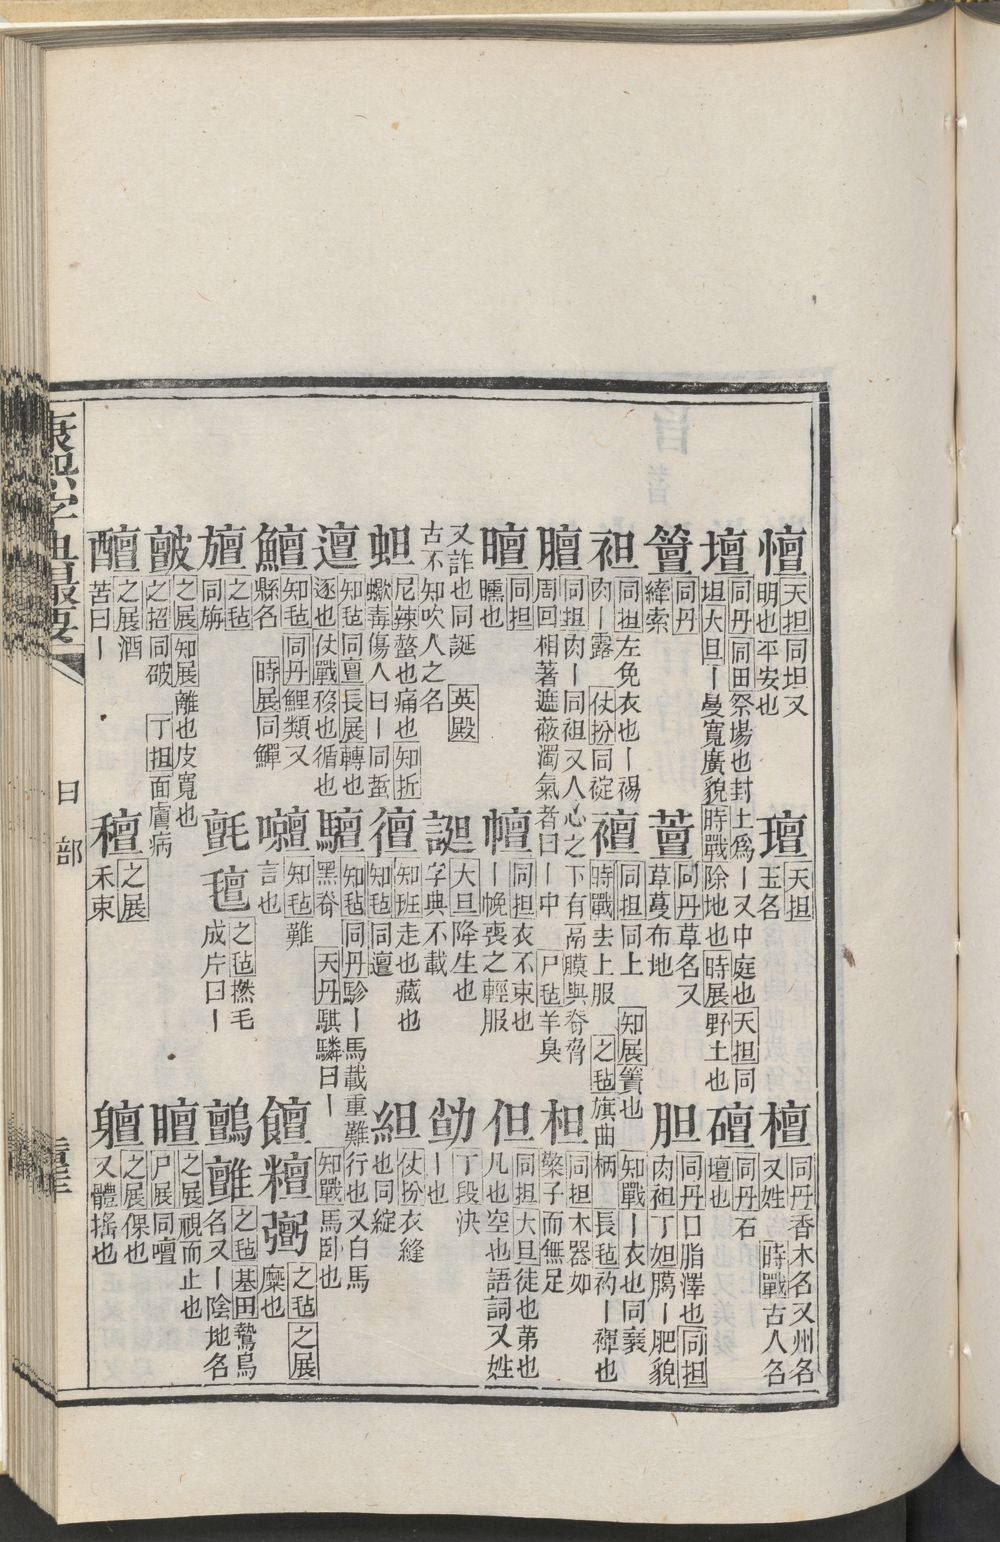 憻 天担同坦又明也平安也
璮 天担玉名
檀 同丹香木名又州名又姓 時戰古人名
壇 同丹同田祭場也封土爲丨又中庭也天担同坦大旦丨曼寬廣貌時戰除地也時展野土也
䃪 同丹石壇也
䉡 同丹繂索
䕊 同丹草名又草蔓布地
胆 同丹口脂澤也同担肉袒丁妲䐽丨肥貌
袒 同担左免衣也丨裼肉丨露 仗扮同䘺
襢 同担同上 知展簀也 知戰丨衣也同襃時戰去上服 之毡旗曲柄 長毡袀丨襌也
膻 同担肉丨同袒又人心之下有鬲膜與脊脅周回相著遮蔽濁氣者曰丨中 尸毡羊臭
柦 同担木器如檠子而無足
曋 同担曛也
幝 同担衣不束也丨幌喪之輕服
但 同担大旦徒也第也凡也空也語詞又姓又詐也同誕 英殿古不知吹人之名
誕 大旦降生也字典不載
勯 丁段決丨也
蛆 尼辣螫也痛也知折蠍毒傷人曰丨同蜇
儃 知班走也藏也知毡同邅
組 仗扮衣縫也同綻
邅 知毡同亶長展轉也逐也仗戰移也循也
驙 知毡同丹驂丨馬載重難行也又白馬黑脊 天丹騏驎曰丨 知戰馬卧也
鱣 知毡同丹鯉類又縣名 時展同鱓
囋 知毡難言也
饘 䊲 䰞 之毡之展糜也
旜 之毡同旃
氈 氊 之毡撚毛成片曰丨
鸇 鸇 之毡基田鷙鳥名又丨陰地名
皽 之展知展離也皮寬也之招同破 丁担面膚病
䁴 之展視而止也尸展同嚪
醰 之展酒苦曰丨
䆄 之展禾束
軀 之展倮也又體搖也
康熙字典撮要
日部